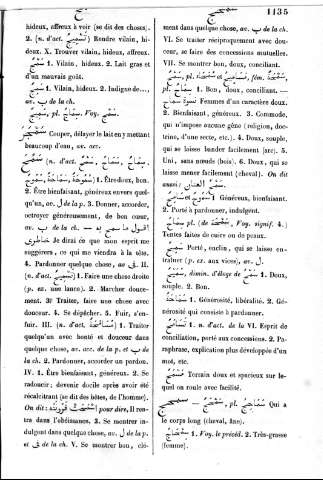 سمج
1135
hideux, affreux à voir (se dit des choses).
2. (n. d'act. تَسْمِيجٌ) Rendre vilain, hi-
deux. X. Trouver vilain, hideux, affreux.
1. Vilain, hideux. 2. Lait gras et
d'un mauvais goût.
1. Vilain, hideux. 2. Indigne de...,
av. ب de la ch.
pl. سِمَاجٌ Voy.
Couper, délayer le lait en y mettant
beaucoup d'eau, av. acc.
سَمُحَ (n. d'act.
1. Être doux, bon.
2. Être bienfaisant, généreux envers quel-
qu'un, av. ل de la p. 3. Donner, accorder,
octroyer généreusement, de bon cœur,
av. ب de la ch. —
je dirai ce que mon esprit me
suggérera, ce qui me viendra à la tête.
4. Pardonner quelque chose, av. ب. II.
(n. d'act. تَسْمِيحٌ) 1. Faire une chose droite
(p. ex. une lance). 2. Marcher douce-
ment. 3. Traiter, faire une chose avec
douceur. 4. Se dépêcher. 5. Fuir, s'en-
fuir. III. (n. d'act. مُسَامَحَةٌ) 1. Traiter
quelqu'un avec bonté et douceur dans
quelque chose, av. acc. de la p. et ب de
la ch. 2. Pardonner, accorder un pardon.
IV. 1. Être bienfaisant, généreux. 2. Se
radoucir; devenir docile après avoir été
récalcitrant (se dit des bêtes, de l'homme).
On dit : أَسْمَحَتْ قَرُونَتُهُ pour dire, Il ren-
tra dans l'obéissance. 3. Se montrer in-
dulgent dans quelque chose, av. ل de la p.
et ب de la ch. V. Se montrer bon, clé-
ment dans quelque chose, av. ب de la ch.
VI. Se traiter réciproquement avec dou-
ceur, se faire des concessions mutuelles.
VII. Se montrer bon, doux, conciliant.
سَمْحٌ pl. (fém. سَمْحَةٌ,
pl. سِمَاحٌ) 1. Bon, doux, conciliant. —
نِسَاءٌ سِمَاحٌ Femmes d'un caractère doux.
2. Bienfaisant, généreux. 3. Commode,
qui n'impose aucune gêne (religion, doc-
trine, d'une secte, etc.). 4. Doux, souple,
qui se laisse bander facilement (arc). 5.
Uni, sans nœuds (bois). 6. Doux, qui se
laisse mener facilement (cheval). On dit
aussi :
1. Généreux, bienfaisant.
2. Porté à pardonner, indulgent.
سِمَاحٌ pl. (de سَمْحَةٌ, Voy. signif. 4.)
Tentes faites de cuirs ou de peaux.
Porté, enclin, qui se laisse en-
traîner (p. ex. aux vices), av. ل.
dimin. d'éloge de سَمْحٌ 1. Doux,
souple. 2. Bon.
1. Générosité, libéralité. 2. Gé-
nérosité qui consiste à pardonner.
تَسَامُحٌ 1. n. d'act. de la VI. Esprit de
conciliation, porté aux concessions. 2. Pa-
raphrase, explication plus développée d'un
mot, etc.
Terrain doux et spacieux sur le-
quel on roule avec facilité.
pl. Qui a
le corps long (cheval, âne).
1. Voy. le précéd. 2. Très-grasse
(femme).